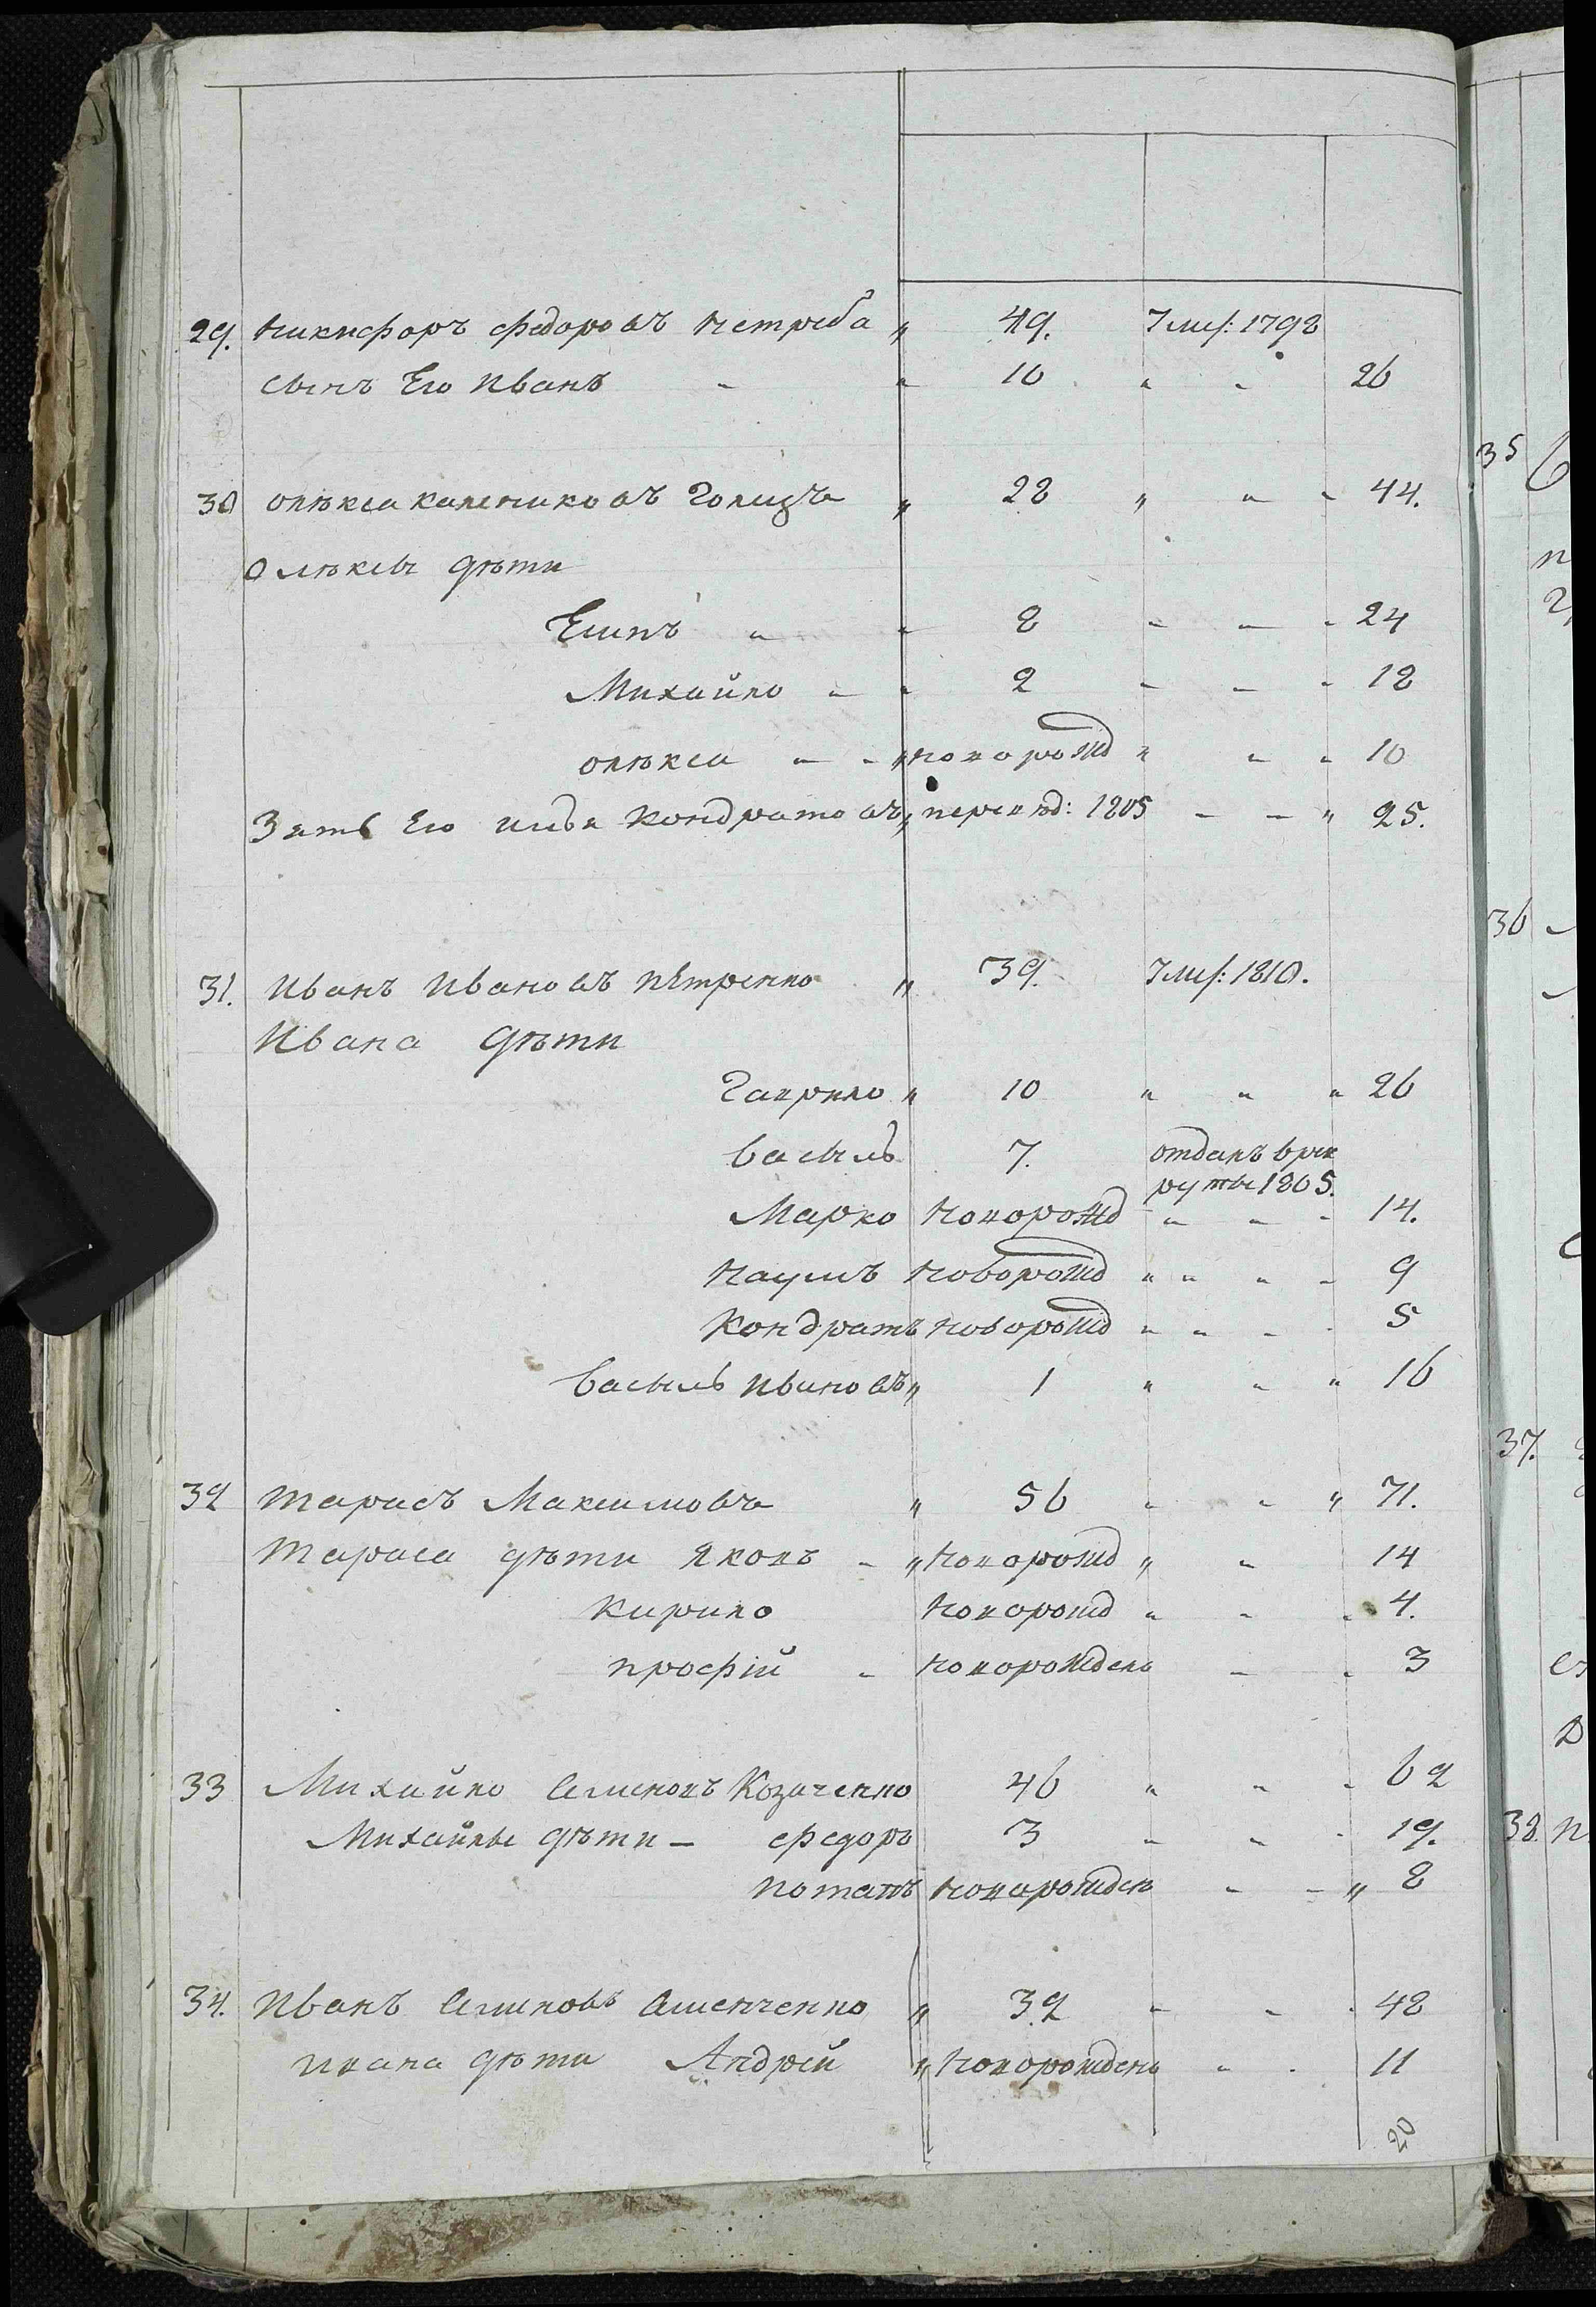 29. Никифоръ Федоровъ Нетреба " 49. Умер: 1798
сынъ Его Иванъ - " 10 " - 26
30 Олѣкса Калениковъ Голицъ " 28 " " - 44.
Олѣксы дѣти
Есипъ " - 8 - - - 24
Михайло - - 2 - - - 18
Олѣкса - - " новорожд " - - 10
Зять Его Илья Кондратовъ " перевед: 1805 - - " 25.
31. Иванъ Ивановъ Пѣтренко " 39. Умер: 1810.
Ивана дѣти
Гаврило " 10 " " " 26
Василь 7. отданъ врек
руты 1805.
Марко Новорожд - - - 14.
Наумъ Новорожд " " - - 9
Кондратъ Новорожд - - - - 5
Василь Ивановъ " 1 " - " 16
32 Тарасъ Максимовъ " 56 - - " 71.
Тараса дѣти Яковъ - " Новорожд " - 14
Кирило Новорожд " - - 4.
Профій - Новорожденъ - - 3
33 Михайло Семеновъ Козаченко 46 " - - 62
Михайлы дѣти - Федоръ 3 - - - 19.
Потапъ Новорожден - - " 8
34. Иванъ Семеновъ Семенченко " 32 - - - 48
Ивана дѣти Андрей " Новорожденъ - - 11
20
35
36
37.
38.